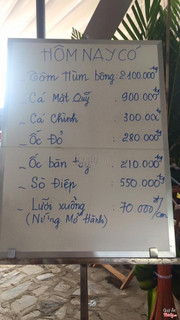 HÔM NAY CÓ
_ Tôm Hùm bông: 2.100.000đ/kg
_ Cá Mặt Quỷ : 900.000đ/kg
_ Cá Chình : 300.000đ/kg
_ Ốc Đỏ : 280.000đ/kg
_ Ốc bàn tay : 210.000đ/kg
_ Sò Điệp : 550.000đ/kg
_ Lưỡi xuồng : 70.000đ/con
(Nướng Mỡ Hành)